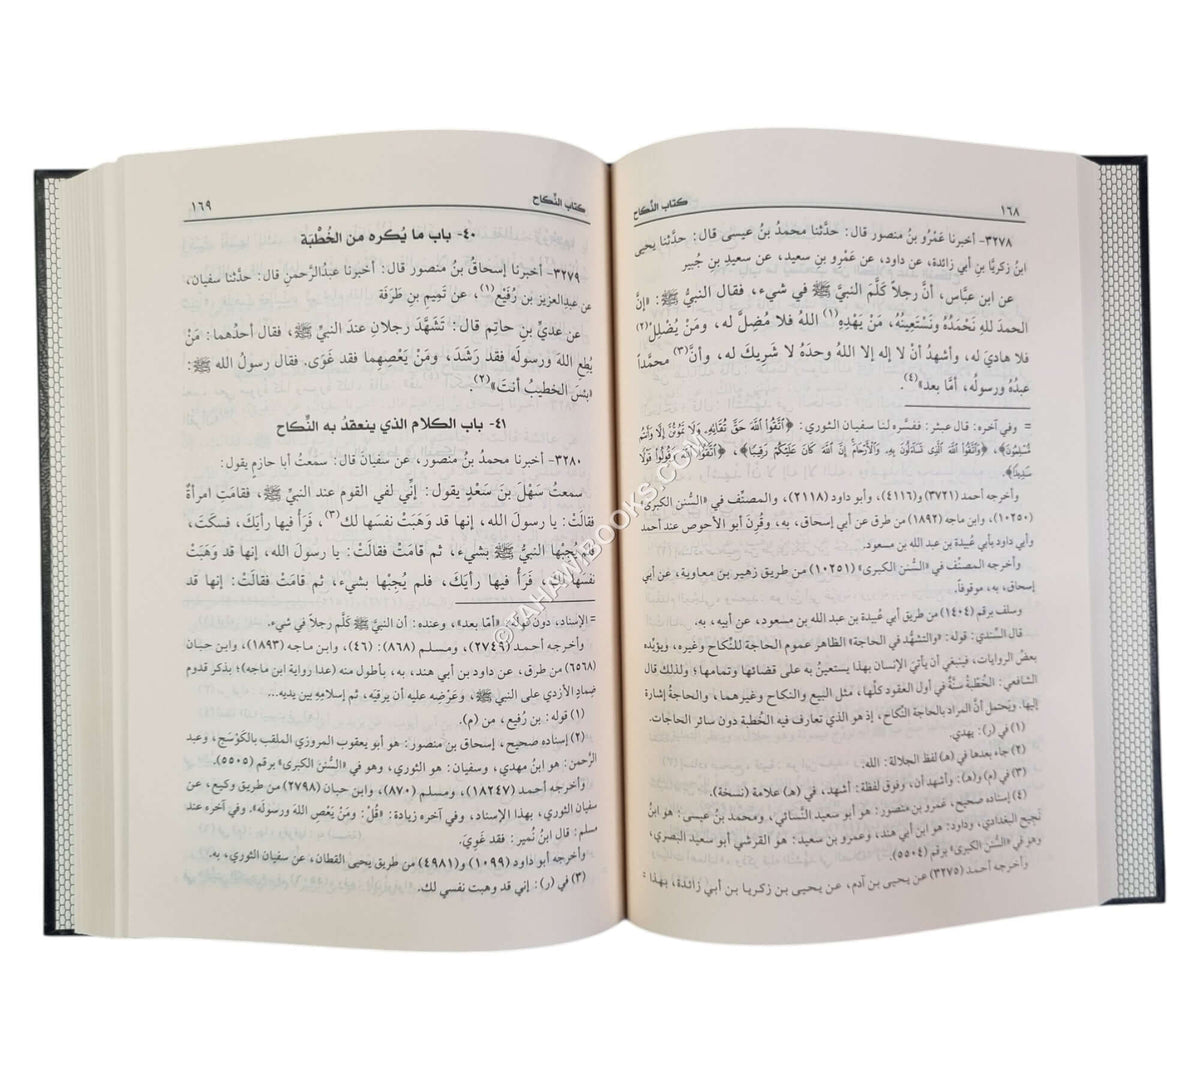 ١٦٨
كتاب النِّكاح
٣٢٧٨- أخبرنا عَمْرُو بنُ منصور قال: حدَّثنا محمدُ بنُ عيسى قال: حدَّثنا يحيى
ابنُ زكريَّا بنِ أبي زائدة، عن داود، عن عَمْرِو بنِ سعيد، عن سعيدِ بنِ جُبير
عن ابن عبَّاس، أنَّ رجلاً كَلَّمَ النبيَّ ﷺ في شيء، فقال النبيُّ ﷺ: «إنَّ
الحمدَ للهِ نَحْمَدُهُ ونَسْتَعِينُهُ، مَنْ يَهْدِهِ(١) اللهُ فلا مُضِلَّ له، ومَنْ يُضْلِلْ(٢)
فلا هاديَ له، وأشهدُ أنْ لا إله إلا اللهُ وحدَهُ لا شريكَ له، وأنَّ(٣) محمَّداً
عبدُهُ ورسولُه، أمَّا بعد»(٤).
= وفي آخره: قال عبثر: ففسَّره لنا سفيان الثوري: ﴿اتَّقُوا اللَّهَ حَقَّ تُقَاتِهِ وَلَا تَمُوتُنَّ إِلَّا وَأَنتُم
مُّسْلِمُونَ﴾، ﴿وَاتَّقُوا اللَّهَ الَّذِي تَسَاءَلُونَ بِهِ وَالْأَرْحَامَ إِنَّ اللَّهَ كَانَ عَلَيْكُمْ رَقِيبًا﴾، ﴿اتَّقُوا اللَّهَ وَقُولُوا قَوْلًا
سَدِيدًا﴾.
وأخرجه أحمد (٣٧٢١) و(٤١١٦)، وأبو داود (٢١١٨)، والمصنِّف في «السُّنن الكبرى»
(١٠٢٥٠)، وابن ماجه (١٨٩٢) من طرق عن أبي إسحاق، به، وقُرِنَ أبو الأحوص عند أحمد
وأبي داود بأبي عُبيدة بن عبد الله بن مسعود.
وأخرجه المصنِّف في «السُّنن الكبرى» (١٠٢٥١) من طريق زهير بن معاوية، عن أبي
إسحاق، به، موقوفاً.
وسلف برقم (١٤٠٤) من طريق أبي عُبيدة بن عبد الله بن مسعود، عن أبيه، به.
قال السِّندي: قوله: «والتشهُّد في الحاجة» الظاهر عموم الحاجة للنِّكاح وغيره، ويؤيِّده
بعضُ الروايات، فينبغي أن يأتيَ الإنسان بهذا يستعينُ به على قضائها وتمامها؛ ولذلك قال
الشافعي: الخُطبةُ سنَّةٌ في أول العقود كلِّها، مثل البيع والنكاح وغيرهما، والحاجةُ إشارة
إليها. ويَحتمل أنَّ المراد بالحاجة النِّكاح، إذ هو الذي تعارف فيه الخُطبة دون سائر الحاجات.
(١) في (ر): يهدي.
(٢) جاء بعدها في (هـ) لفظ الجلالة: الله.
(٣) في (م) و(هـ): وأشهد أن، وفوق لفظة: أشهد، في (هـ) علامة (نسخة).
(٤) إسناده صحيح، عَمرو بن منصور: هو أبو سعيد النَّسائي، ومحمد بنُ عيسى: هو ابنُ
نَجِيح البغدادي، وداود: هو ابن أبي هند، وعمرو بن سعيد: هو القرشي أبو سعيد البصري،
وهو في «السُّنن الكبرى» برقم (٥٥٠٤).
وأخرجه أحمد (٣٢٧٥) عن يحيى بن آدم، عن يحيى بن زكريا بن أبي زائدة، بهذا =
كتاب النِّكاح
١٦٩
٤٠- باب ما يُكره من الخُطْبَة
٣٢٧٩- أخبرنا إسحاقُ بنُ منصور قال: أخبرنا عبدُالرَّحمنِ قال: حدَّثنا سفيان،
عن عبدِالعزيز بنِ رُفَيْع(١)، عن تَمِيمِ بنِ طَرَفَة
عن عديِّ بنِ حاتِم قال: تَشَهَّدَ رجلانِ عندَ النبيِّ ﷺ، فقال أحدُهما: مَنْ
يُطِعِ اللهَ ورسولَه فقد رَشَدَ، ومَنْ يَعْصِهِما فقد غَوَى. فقال رسولُ الله ﷺ:
«بئسَ الخطيبُ أنتَ»(٢).
٤١- باب الكلام الذي ينعقدُ به النِّكاح
٣٢٨٠- أخبرنا محمدُ بنُ منصور، عن سفيانَ قال: سمعتُ أبا حازمٍ يقول:
سمعتُ سَهْلَ بنَ سَعْدٍ يقول: إنِّي لفي القوم عند النبيِّ ﷺ، فقامَتِ امرأةٌ
فقالَتْ: يا رسولَ الله، إنها قد وَهَبَتْ نفسَها لك(٣)، فَرَأْ فيها رأيَكَ، فسكَتَ،
فلم يُجِبْها النبيُّ ﷺ بشيء، ثم قامَتْ فقالَتْ: يا رسولَ الله، إنها قد وَهَبَتْ
نفسَها لك، فَرَأْ فيها رأيَكَ، فلم يُجِبْها بشيء، ثم قامَتْ فقالَتْ: إنها قد
= الإسناد، دون قوله: «أمَّا بعد»، وعنده: أن النبيَّ ﷺ كَلَّم رجلاً في شيء.
وأخرجه أحمد (٢٧٤٩)، ومسلم (٨٦٨): (٤٦)، وابن ماجه (١٨٩٣)، وابن حبان
(٦٥٦٨) من طرق، عن داود بن أبي هند، به، بأطول منه (عدا رواية ابن ماجه)؛ بذكر قدوم
ضِمادٍ الأزدي على النبيِّ ﷺ، وعَرْضِه عليه أن يرقيَه، ثم إسلامِه بين يديه...
(١) قوله: بن رُفيع، من (م).
(٢) إسناده صحيح، إسحاق بن منصور: هو أبو يعقوب المروزي الملقب بالكَوْسَج، وعبد
الرَّحمن: هو ابنُ مهدي، وسفيان: هو الثوري، وهو في «السُّنن الكبرى» برقم (٥٥٠٥).
وأخرجه أحمد (١٨٢٤٧)، ومسلم (٨٧٠)، وابن حبان (٢٧٩٨) من طريق وكيع، عن
سفيان الثوري، بهذا الإسناد، وفي آخره زيادة: «قُلْ: ومَنْ يَعْصِ اللهَ ورسولَه». وفي آخره عند
مسلم: قال ابنُ نُمير: فقد غَوِيَ.
وأخرجه أبو داود (١٠٩٩) و(٤٩٨١) من طريق يحيى القطان، عن سفيان الثوري، به.
(٣) في (ر): إني قد وهبت نفسي لك.
©TAHAWIBOOKS.COM